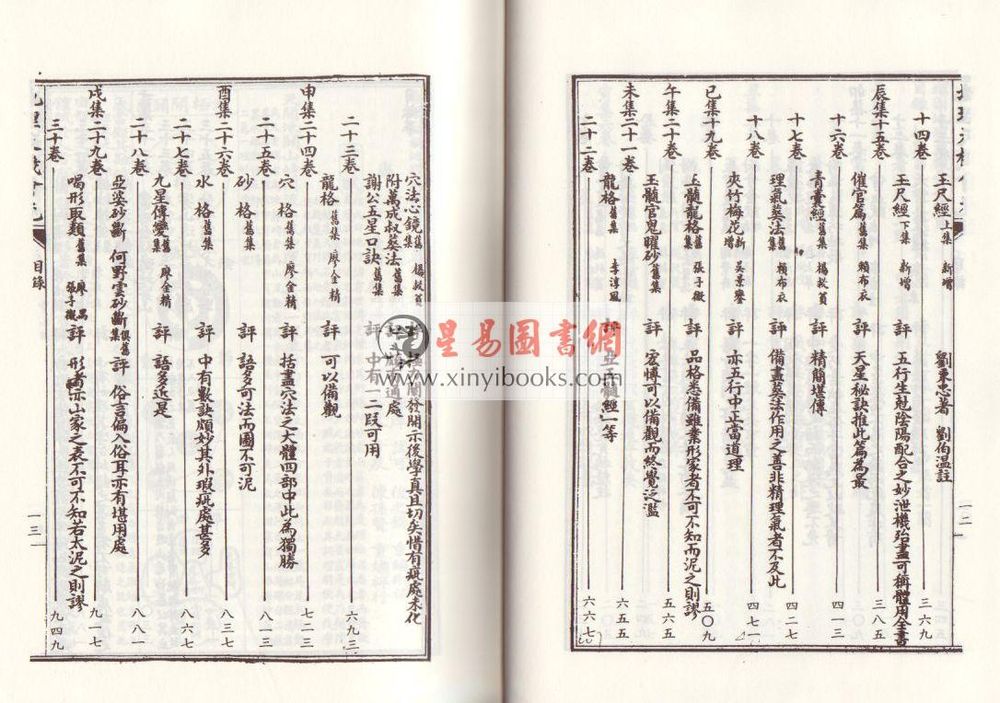 十四卷 三六九
玉尺經 上集 新增 劉秉忠著 劉伯溫註
辰集十五卷 三八五
玉尺經 下集 新增 評 五行生尅陰陽配合之妙泄機殆盡可稱體用全書
十六卷 四一三
催官篇 舊集 賴布衣 評 天星秘訣推此篇為最
青囊經 舊集 楊救貧 評 精簡堪傳
十七卷 四二七
理氣葬法 舊集 賴布衣 評 備盡葬法作用之善非精理氣者不及此
十八卷 四七一
夾竹梅花 新增 吳景鸞 評 亦五行中正當道理
巳集十九卷 五〇九
玉髓龍格 舊集 張子微 評 品格悉備雖業形家者不可不知而泥之則謬
午集二十卷 五六五
玉髓官鬼曜砂 舊集 評 宏博可以備觀而終覺泛濫
未集二十一卷 六五五
龍格 舊集 李淳風 評 亞玉髓經一等
二十二卷 六六七
一二
穴法心鏡 舊集 楊救貧 開示後學真且切矣惜有疵處未化
附萬成叔葬法 舊集 處
謝公五星口訣 舊集 評 中有一二段可用
二十三卷 六九三
龍格 舊集 廖金精 評 可以備觀
申集二十四卷 七二三
穴格 舊集 廖金精 評 括盡穴法之大體四部中此為獨勝
二十五卷 八一三
砂格 舊集 評 語多可法而圖不可泥
酉集二十六卷 八三七
水格 舊集 評 中有數訣頗妙其外瑕疵處甚多
二十七卷 八六七
九星傳變 舊集 廖金精 評 語多近是
二十八卷 八八一
亞婆砂斷 何野雲砂斷 俱舊集 評 俗言偏入俗耳亦有堪用處
戌集二十九卷 九一七
喝形取類 舊集 廖禹 張子微 評 形者亦山家之表不可不知若太泥之則謬
三十卷 九四九
目錄
一三
星易圖書網
www.xinyibooks.com